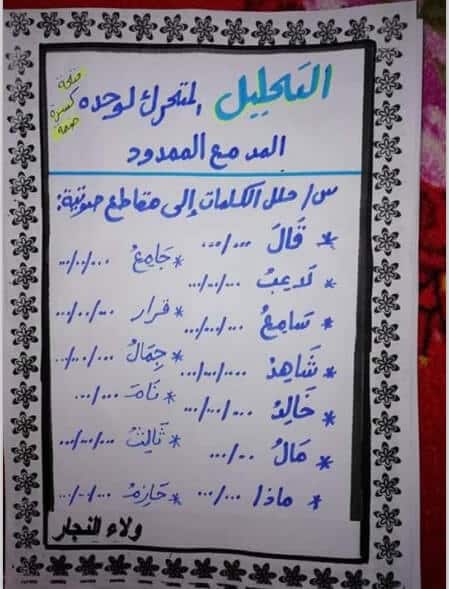 التحليل المتحرك لوحده
فتحة
كسرة
ضمة
المد مع الممدود
س/ حلل الكلمات إلى مقاطع صوتية:
* قَالَ .../...
* لاعِبُ .../.../...
* سَامِعُ .../.../...
* شَاهِدُ .../.../...
* خَالِدُ .../.../...
* مَالُ .../...
* ماذا .../...
* جَامِعُ .../.../...
* قرار .../.../...
* جِمَالُ .../.../...
* نَامَ .../...
* ثَالِثُ .../.../...
* حَازِمُ .../.../...
ولاء النجار